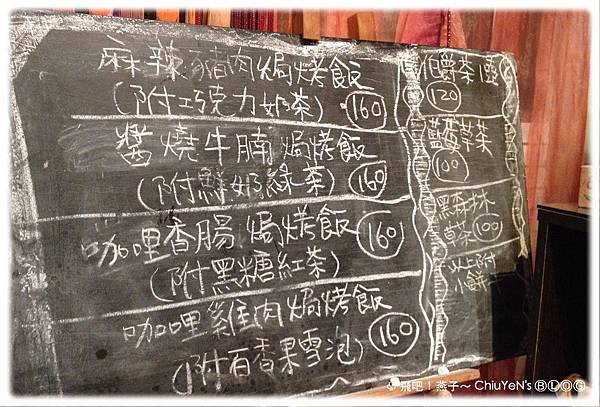 麻辣豬肉焗烤飯
(附巧克力奶茶) 160
醬燒牛腩焗烤飯
(附鮮奶綠茶) 160
咖哩香腸焗烤飯
(附黑糖紅茶) 160
咖哩雞肉焗烤飯
(附百香果雪泡) 160
伯爵茶
120
藍莓草茶
100
黑森林
草茶 100
以上附
小餅干
飛吧！燕子～ ChiuYeN's BLOG